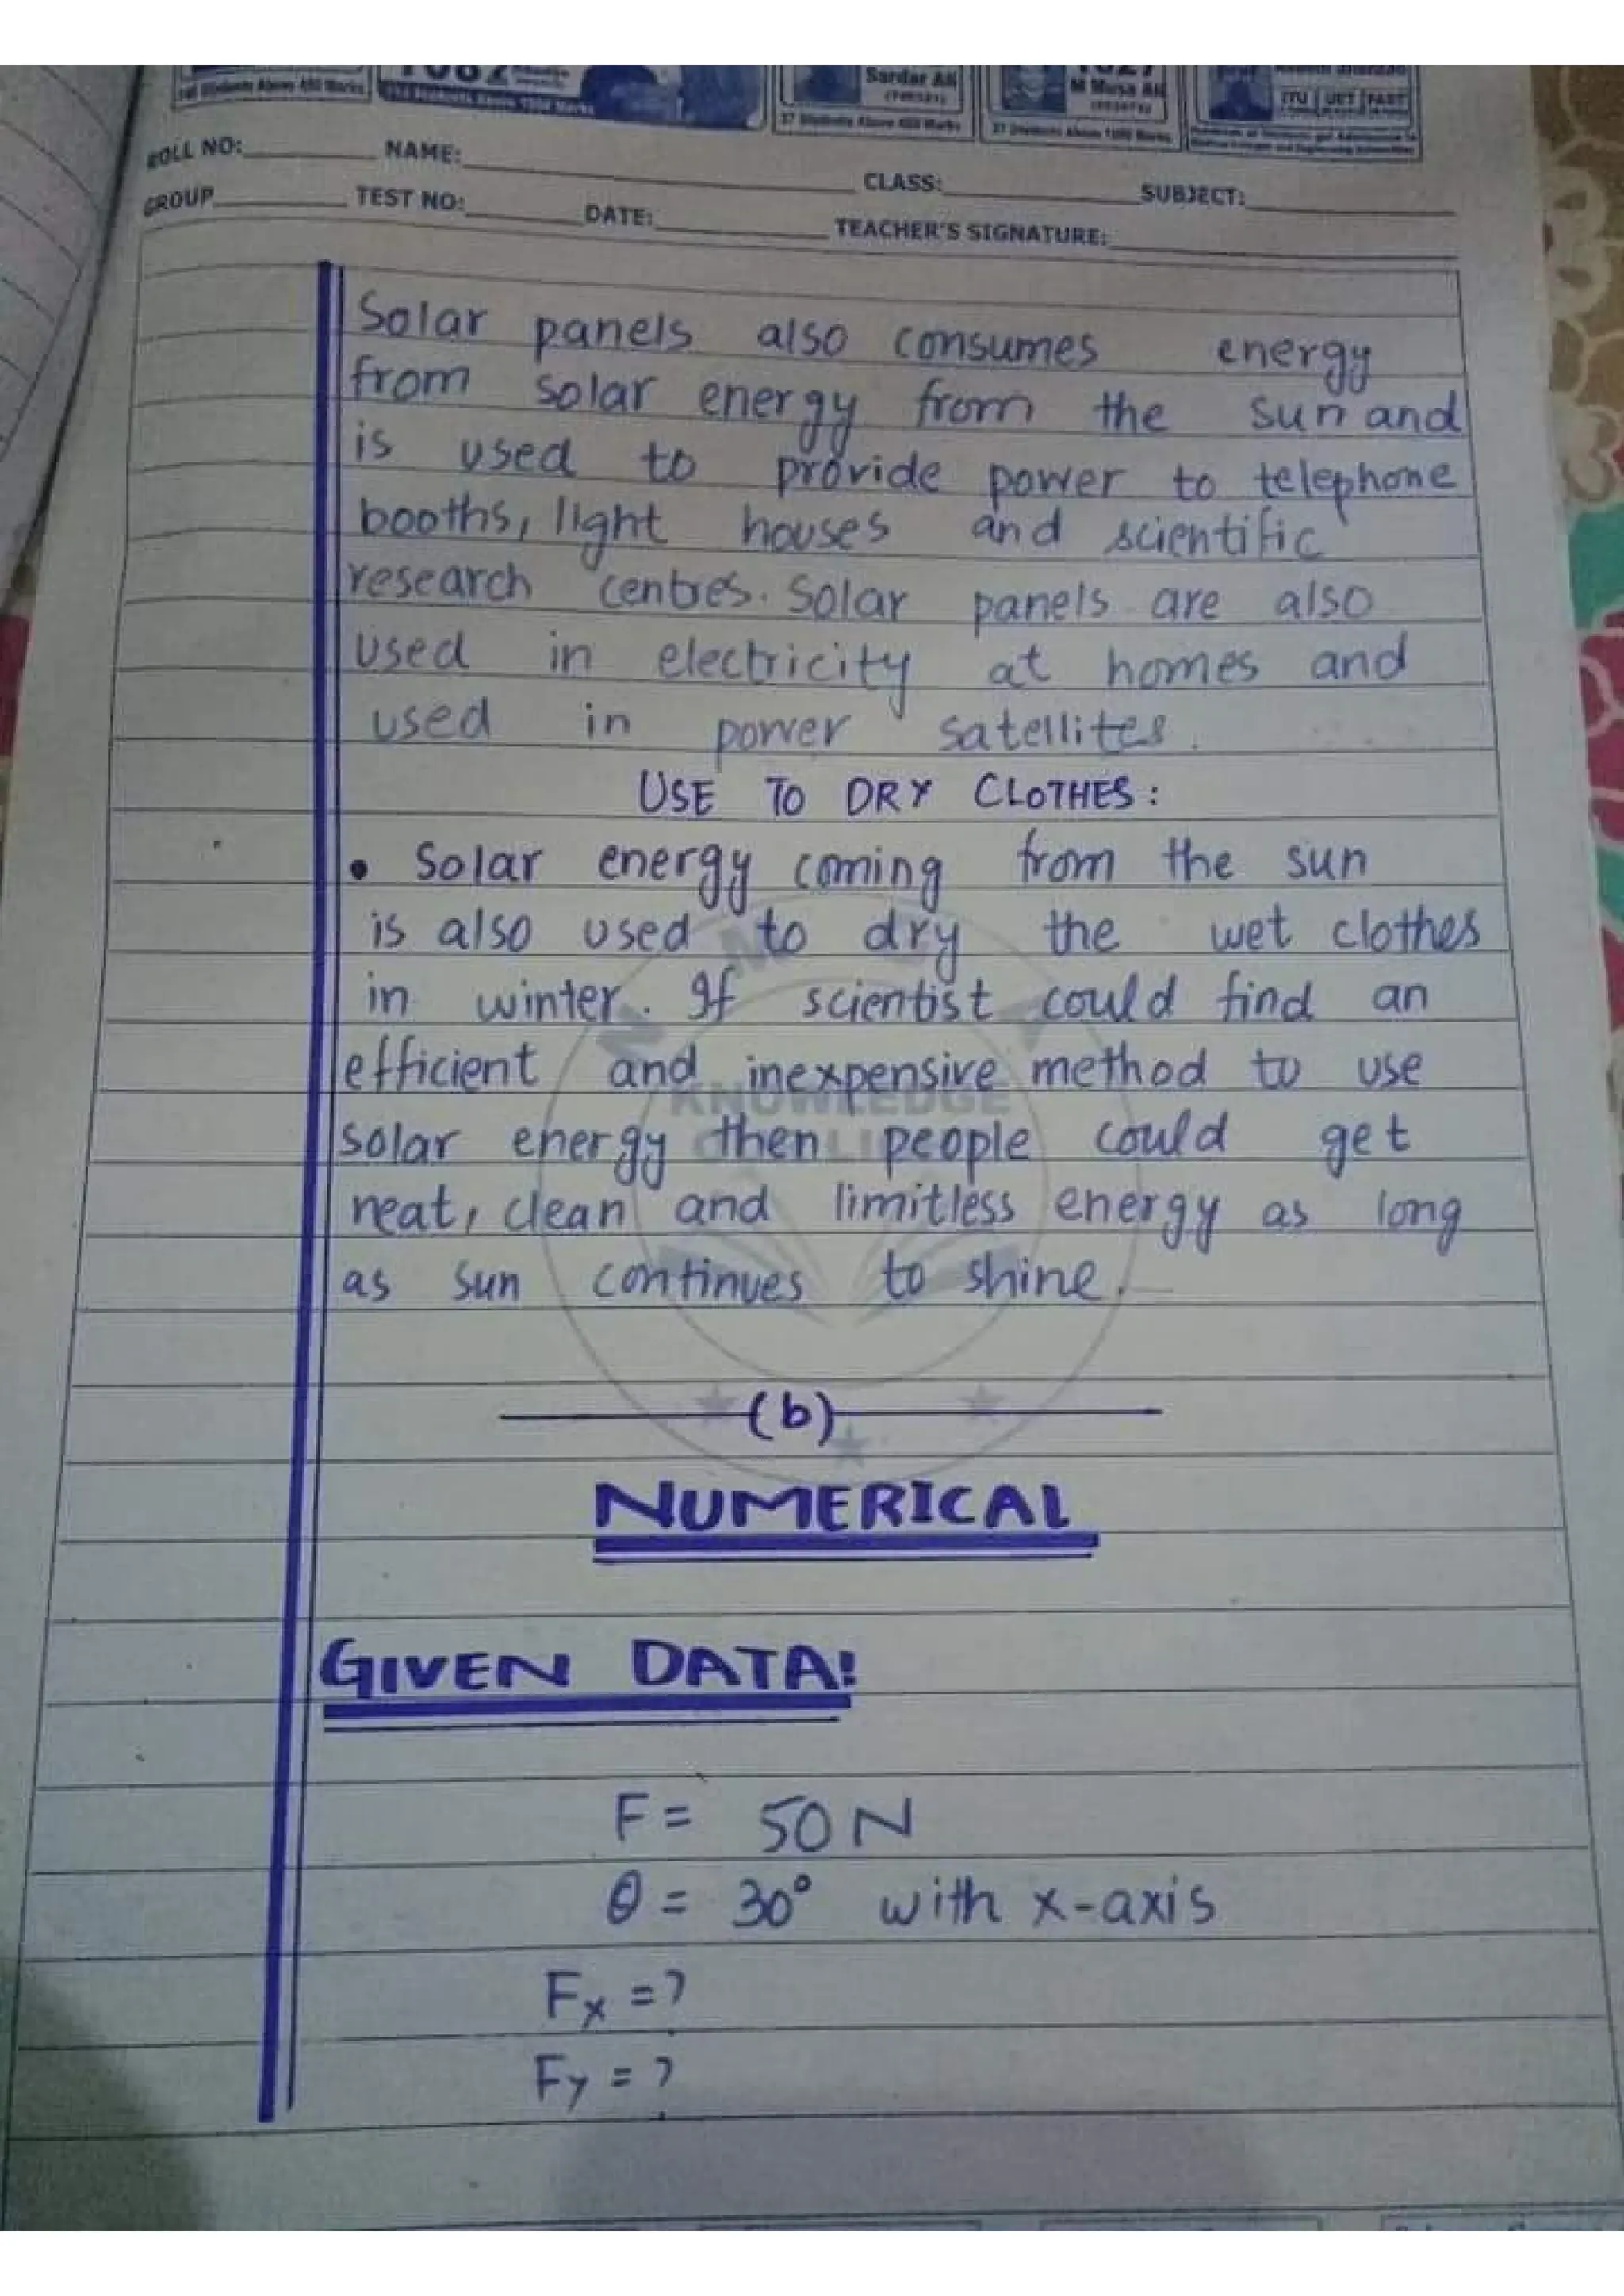 1082
Sardar Ali
M Musa Ali
ITU UET FAST
37 Students Above 1000 Marks
ROLL NO: NAME: CLASS: SUBJECT:
GROUP TEST NO: DATE: TEACHER'S SIGNATURE:
Solar panels also consumes energy
from solar energy from the sun and
is used to provide power to telephone
booths, light houses and scientific
research centres. Solar panels are also
used in electricity at homes and
used in power satellites.
USE TO DRY CLOTHES:
• Solar energy coming from the sun
is also used to dry the wet clothes
in winter. If scientist could find an
efficient and inexpensive method to use
solar energy then people could get
neat, clean and limitless energy as long
as sun continues to shine.
KNOWLEDGE
(b)
NUMERICAL
GIVEN DATA:
F = 50 N
θ = 30° with x-axis
Fx = ?
Fy = ?